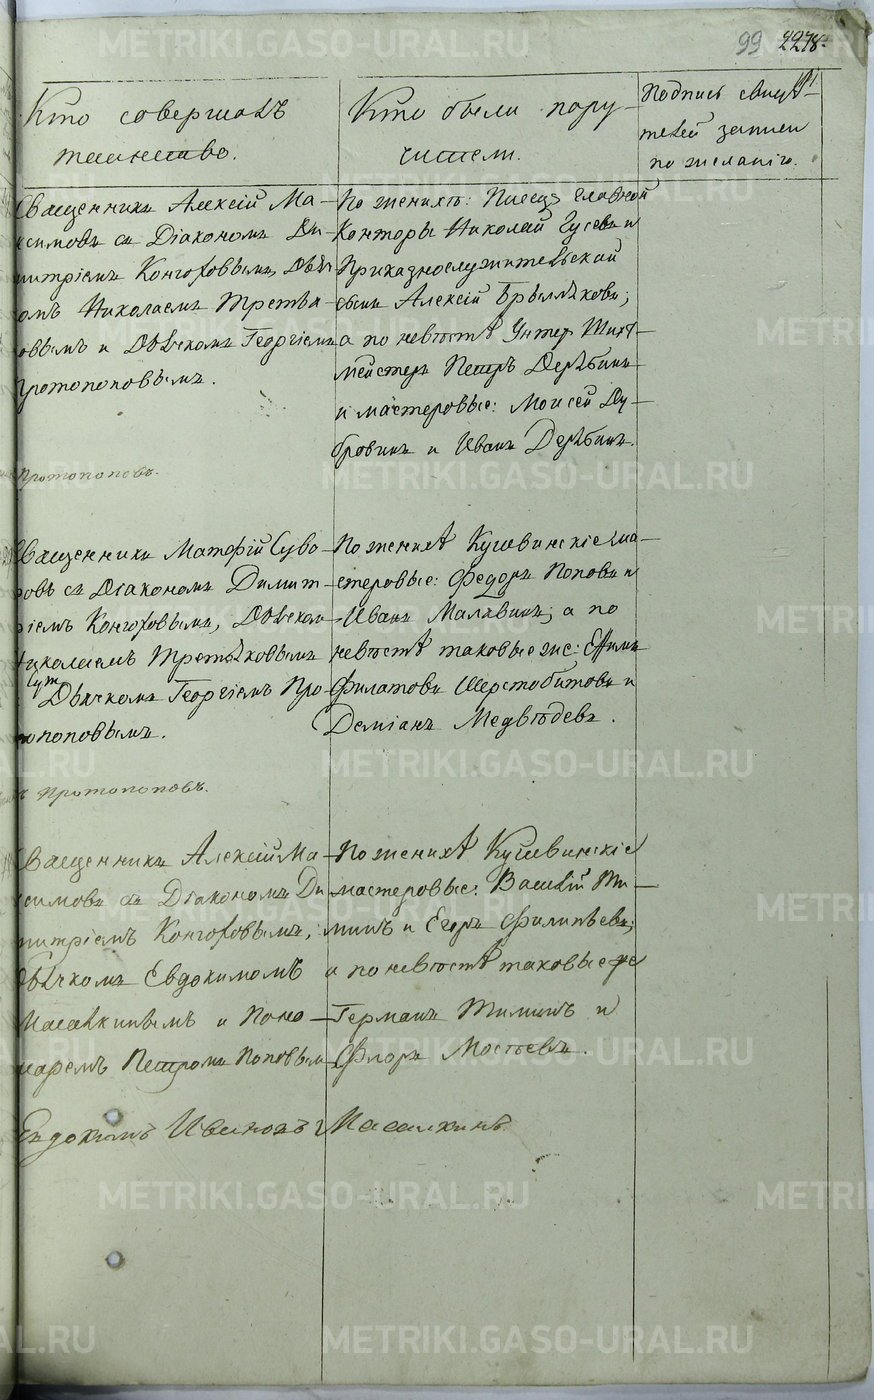 99 2278.
Кто совершалъ
таинство.
Кто были пору-
чители.
Подпись свидѣ-
телей записи
по желанію.
Священникъ Алексій Ма-
ксимовъ съ Діакономъ Ди-
митріемъ Конгоровымъ, Дьяч-
комъ Николаемъ Третья-
ковымъ и Дьячкомъ Георгіемъ
Протопоповымъ.
По женихѣ: Писецъ главной
Конторы Николай Гусевъ и
Приказнослужительскій
сынъ Алексій Брылляковъ;
а по невѣстѣ Унтеръ Шихт-
мейстеръ Петръ Дерябинъ
и мастеровые: Моисей Ду-
бровинъ и Иванъ Дерябинъ.
Протопоповъ.
Священникъ Матфій Суво-
ровъ съ Діакономъ Димит-
ріемъ Конгоровымъ, Дьячком
Николаемъ Третьяковымъ
Дьячкомъ Георгіемъ Про-
топоповымъ.
По женихѣ Кушвинскіе ма-
стеровые: Федоръ Поповъ и
Иванъ Малявинъ; а по
невѣстѣ таковые же: Ефимъ
Филатовъ Шерстобитовъ и
Деміанъ Медвѣдевъ.
Протопоповъ.
Священникъ Алексій Ма-
ксимовъ съ Діакономъ Ди-
митріемъ Конгоровымъ,
Дьячкомъ Евдокимомъ
Масалкинымъ и Поно-
маремъ Петромъ Поповым
По женихѣ Кушвинскіе
мастеровые: Василій Ти-
минъ и Егоръ Филипьевъ;
и по невѣстѣ таковые же
Германъ Тиминъ и
Флоръ Мостьевъ.
Евдокимъ Ивановъ Масалкинъ